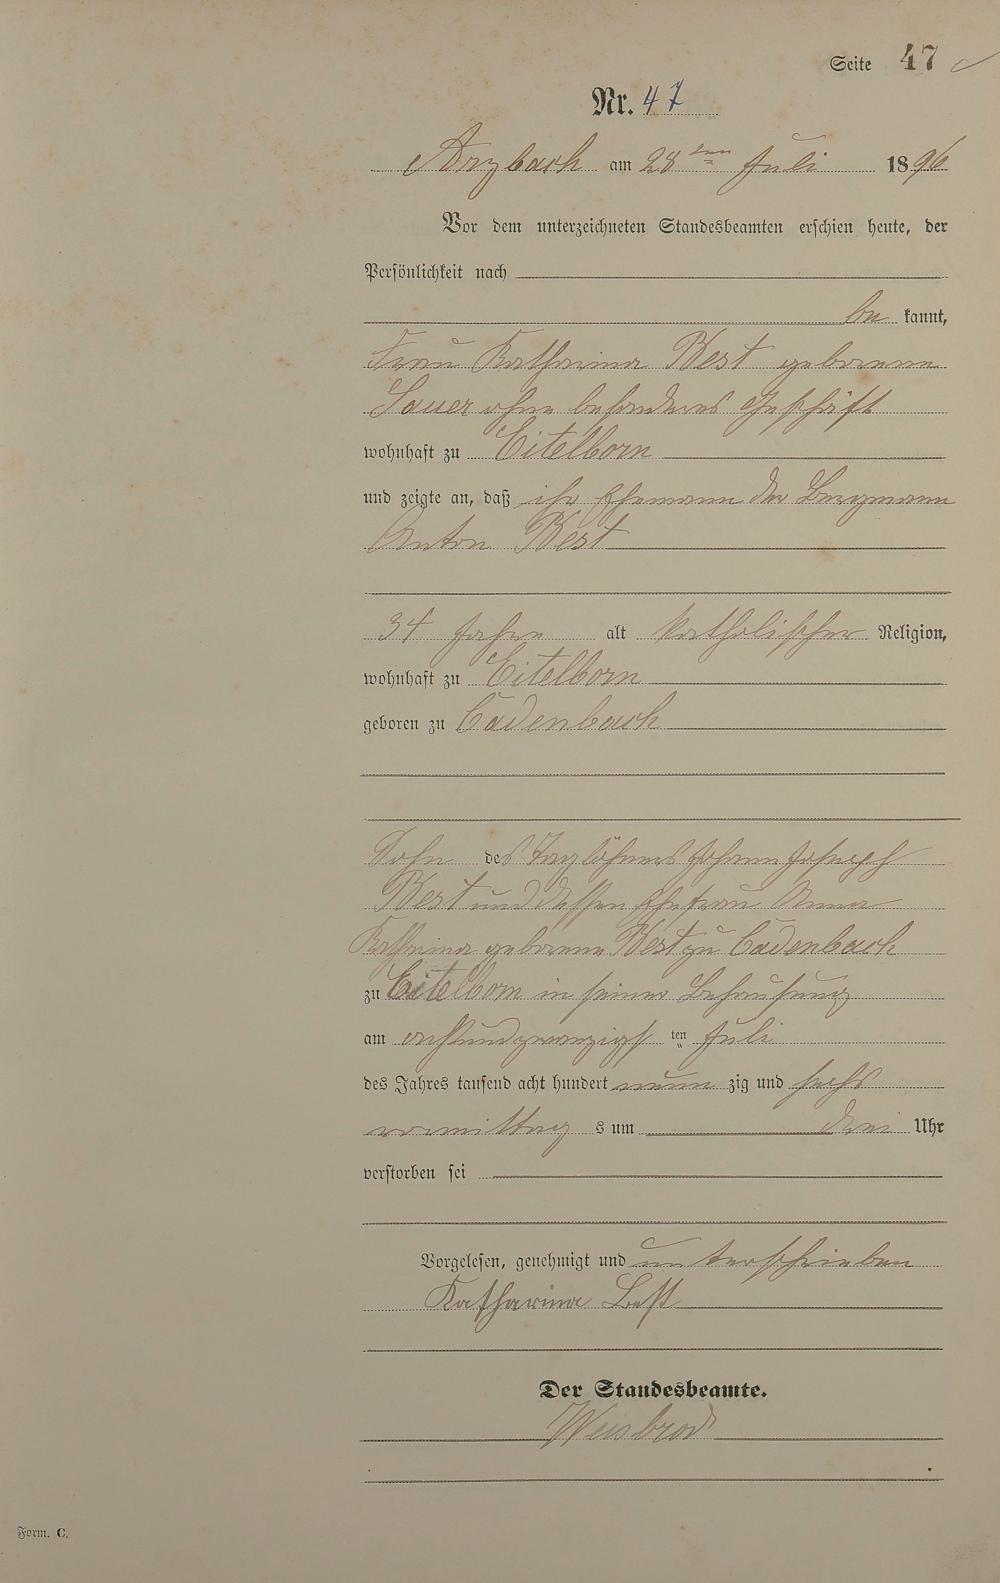 Seite 47
Nr. 47
Arzbach am 28ten Juli 1896
Vor dem unterzeichneten Standesbeamten erschien heute, der
Persönlichkeit nach
be kannt,
Frau Katharina Best geborene
Sauer ohne besonderes Geschäft
wohnhaft zu Eitelborn
und zeigte an, daß ihr Ehemann der Bergmann
Anton Best
34 Jahre alt katholischer Religion,
wohnhaft zu Eitelborn
geboren zu Cadenbach
Sohn des Taglöhners Johann Joseph
Best und dessen Ehefrau Anna
Katharina geborene Best zu Cadenbach
zu Eitelborn in seiner Behausung
am achtundzwanzigst ten Juli
des Jahres tausend acht hundert neun zig und sechs
vormittag s um drei Uhr
verstorben sei
Vorgelesen, genehmigt und unterschrieben
Katharina Best
Der Standesbeamte.
Weisbrod
Form. C.